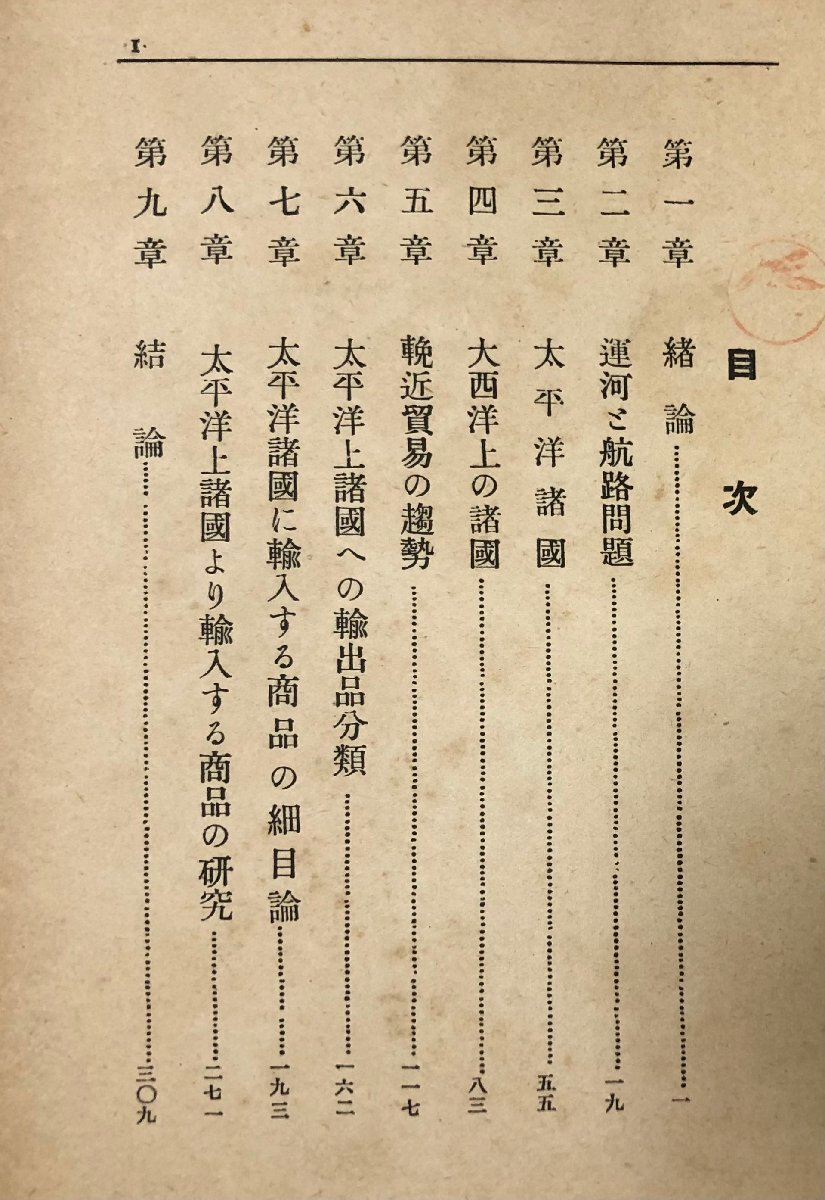 1
目次
第一章 緒論……一
第二章 運河と航路問題……一九
第三章 太平洋諸國……五五
第四章 大西洋上の諸國……八三
第五章 輓近貿易の趨勢……一一七
第六章 太平洋上諸國への輸出品分類……一六二
第七章 太平洋諸國に輸入する商品の細目論……一九三
第八章 太平洋上諸國より輸入する商品の研究……二七一
第九章 結論……三〇九